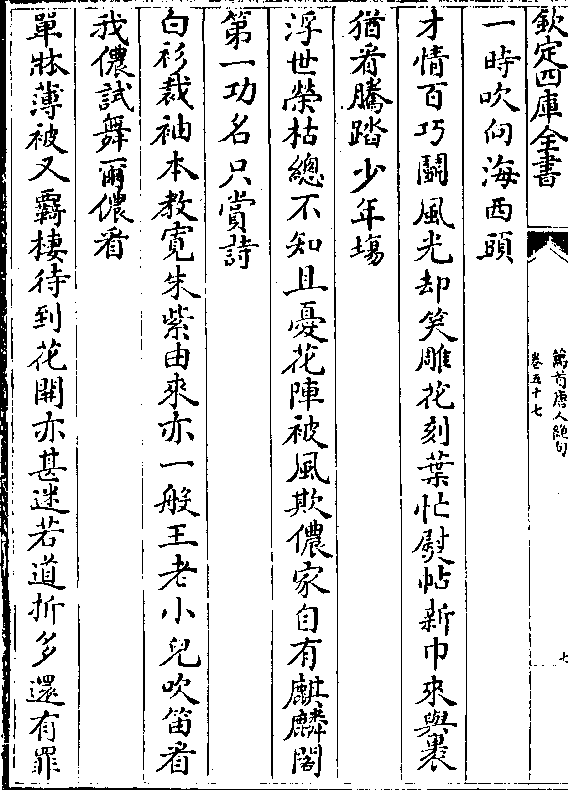 欽定四庫全書
萬首唐人絶句
卷五十七
七
一時吹向海西頭
才情百巧鬭風光却笑雕花刻葉忙熨帖新巾來與裹
猶看騰踏少年塲
浮世榮枯總不知且憂花陣被風欺儂家自有麒麟閣
第一功名只賞詩
白衫裁袖本教寛朱紫由來亦一般王老小兒吹笛看
我儂試舞爾儂看
單牀薄被又覊棲待到花開亦甚迷若道折多還有罪